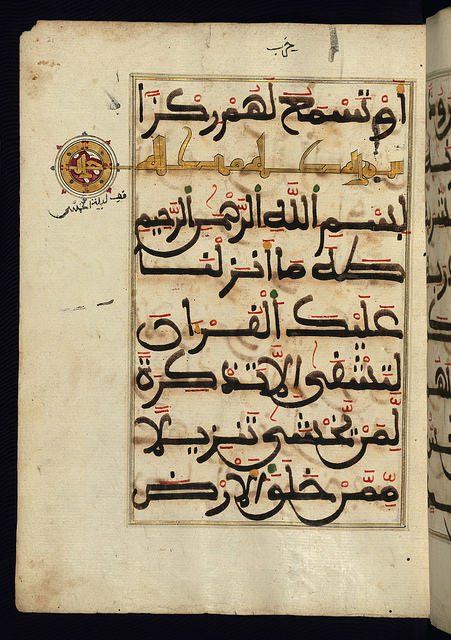 حزب
أَوْ تَسْمَعُ لَهُمْ رِكْزًا
سورة طه
بِسْمِ اللَّهِ الرَّحْمَٰنِ الرَّحِيمِ
طه مَا أَنزَلْنَا
عَلَيْكَ الْقُرْآنَ
لِتَشْقَىٰ إِلَّا تَذْكِرَةً
لِّمَن يَخْشَىٰ تَنزِيلًا
مِّمَّنْ خَلَقَ الْأَرْضَ
ليلة الخميس